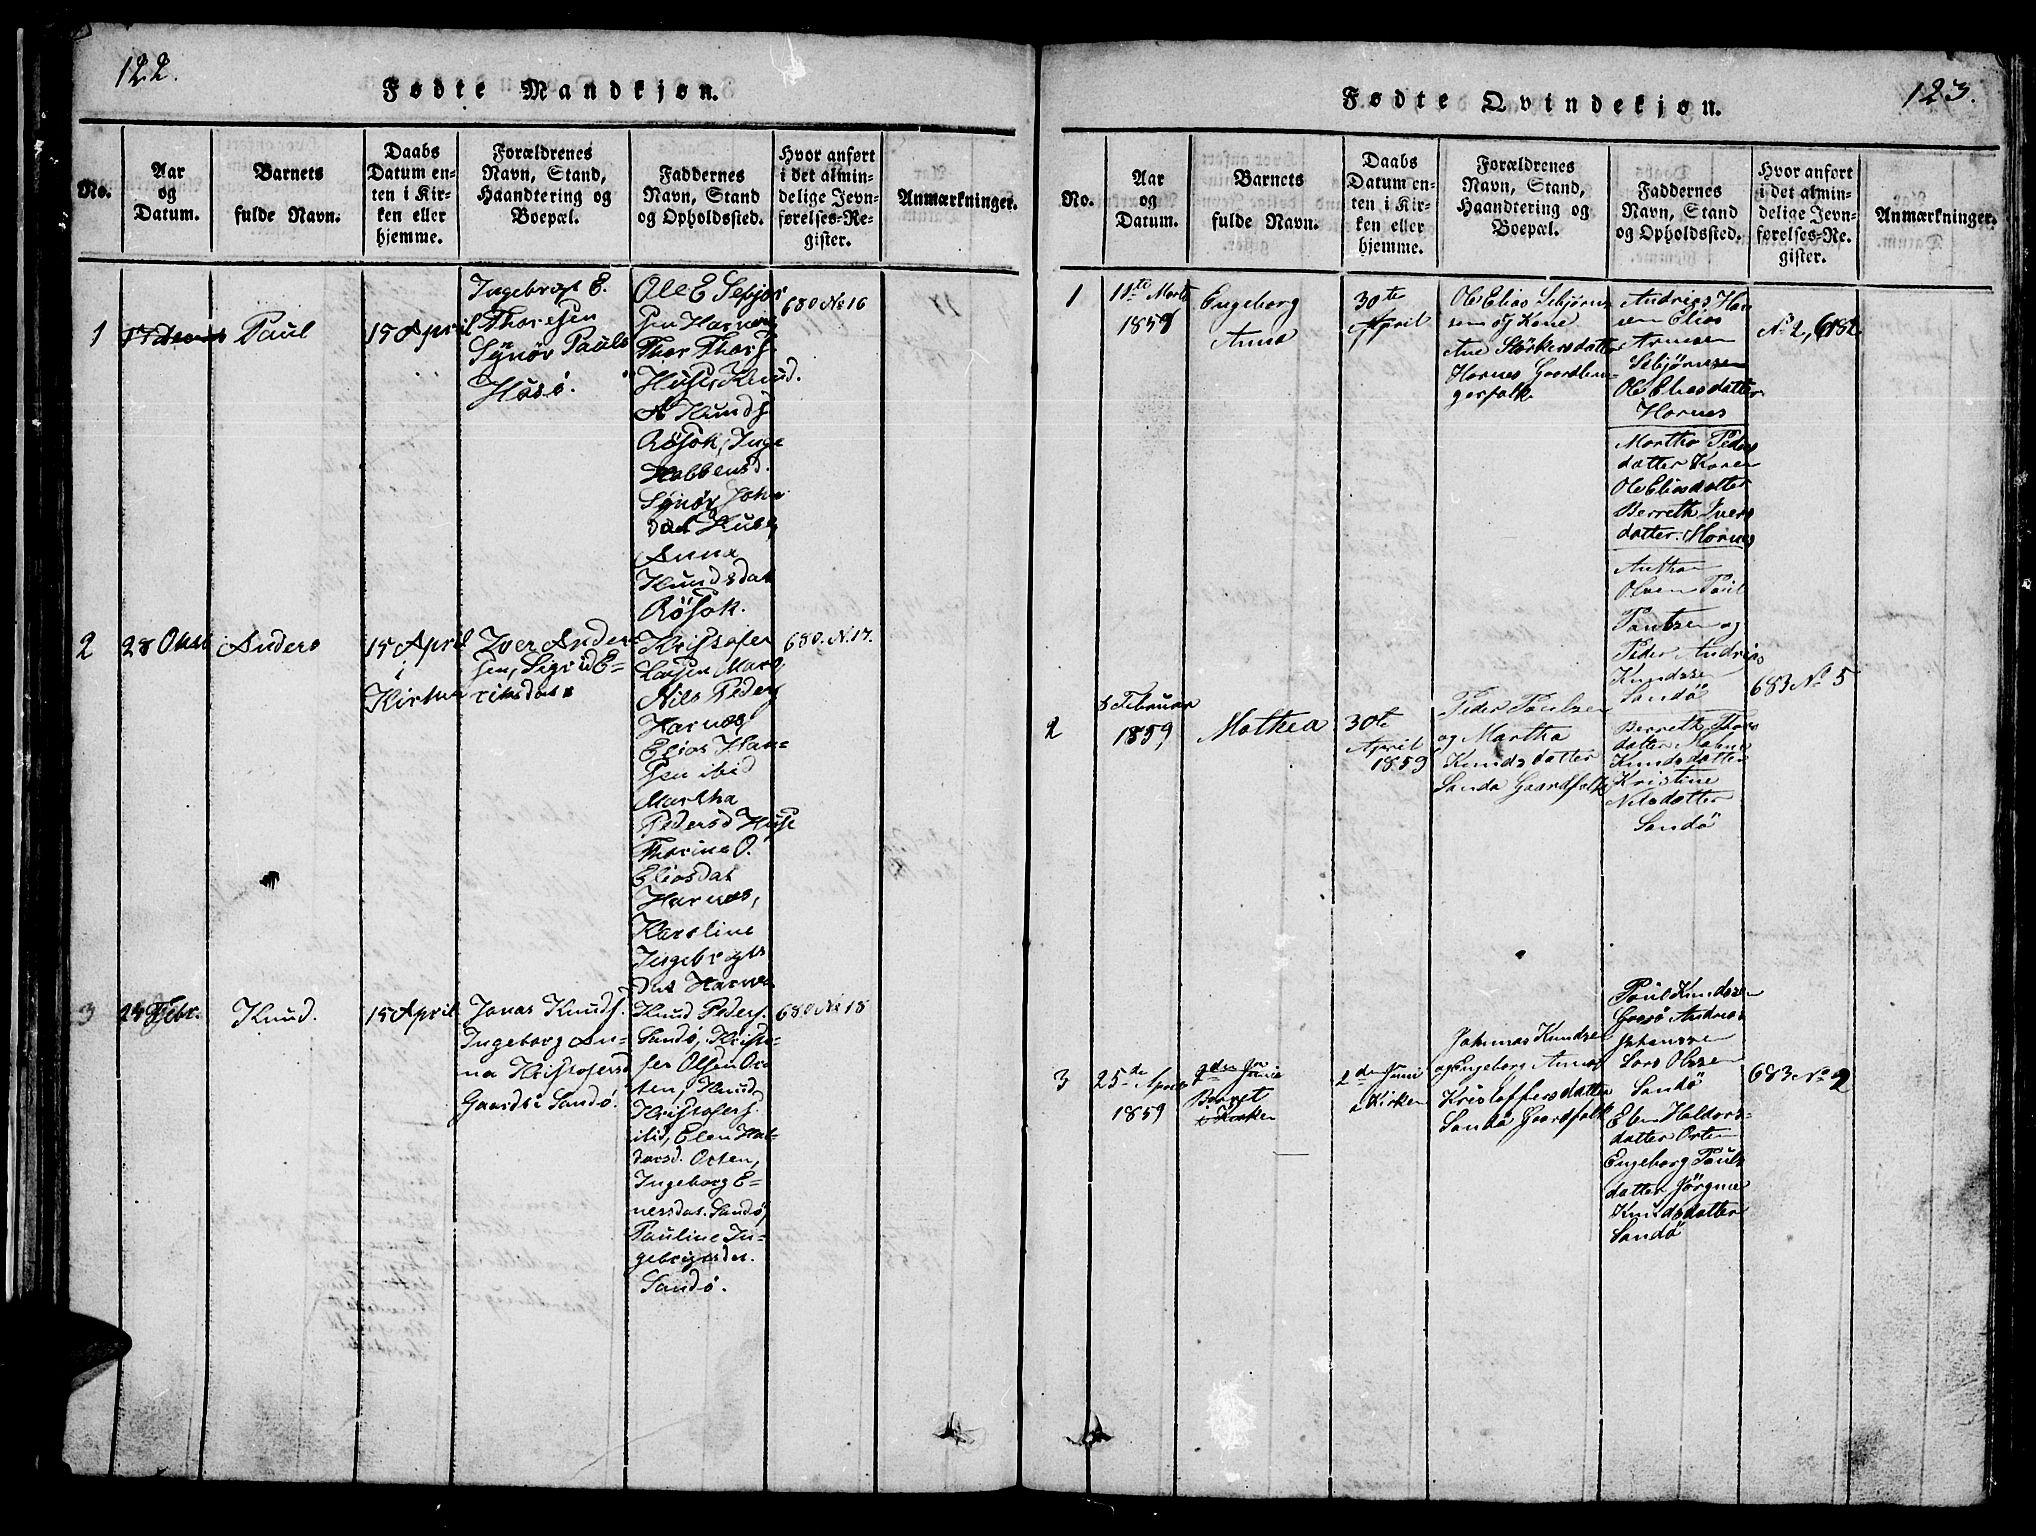 122.
Fødte Mandkjøn.
No.
Aar
og
Datum.
Barnets
fulde Navn.
Daabs
Datum en-
ten i Kir-
ken eller
hjemme.
Forældrenes
Navn, Stand,
Haandtering og
Boepæl.
Faddernes
Navn, Stand
og Opholdssted.
Hvor anført
i det almin-
delige Jevn-
førelses-Re-
gister.
Anmærkninger.
1
Paul
15 April
Ingebrigt E.
Thoresen
Synør Pauls
Husø.
Ole E Sebjør
sen Harnes
Thor Thors.
Huse, Knud.
A Knuds.
Røsok, Inge
Habbensd.
Synør John
dat Huse,
Anna
Knudsdat
Røsok.
680 No 16
2
Anders
15 April
i
Kirken
Iver Ander
sen, Sigrid E-
riksdat
Kristofer
Larsen Marø
Nils Peders
Harnes
Elias Han-
sen ibid
Martha
Pedersd Huse
Thorine O.
Eliasdat
Harnes,
Karoline
Ingebrigts
dat Harnes
680. N. 17.
3
25 Febr.
Knud.
15 April
Jonas Knuds.
Ingeborg An-
na Kristofersd
Gaardb: Sandø.
Knud Peders.
Sandø, Kristo-
fer Olsen Or-
ten, Knud
Kristofers.
ibid, Elen Hal-
dorsd. Orten,
Ingeborg E-
nersdat. Sandø,
Pauline In-
gebrigtsdat.
Sandø.
680 No 18
123.
Fødte Qvindekjøn.
No.
Aar
og
Datum.
Barnets
fulde Navn.
Daabs
Datum en-
ten i Kir-
ken eller
hjemme.
Forældrenes
Navn, Stand,
Haandtering og
Boepæl.
Faddernes
Navn, Stand
og Opholdssted.
Hvor anført
i det almin-
delige Jevn-
førelses-Re-
gister.
Anmærkninger.
1
11te Marts
1859
Engeborg
Anna
30te
April
Ole Elias Sebjørns
sen og Kone
Ane Størkersdatter
Hornes Gaardbru-
gerfolk
Andreas Han
sen Elias
Arnesen
Sebjørnsen
Ole Eliasdatter
Hornes
Martha Peders
datter Karen
Ole Eliasdatter
Berreth Ivers
datter. Hornes
No 2, 682
2
Februar
1859
Mathea
30te
April
1859
Peder Paulsen
og Martha
Knudsdatter
Sandø Gaardfolk
Anthon
Olsen Paul
Paulsen og
Peder Andreas
Knudsen
Sandø
Berreth Thors
datter Malene
Knudsdatter
Kristine
Nilsdatter
Sandø
683 No 5
3
25de April
1859
2den Juni
Baaret
i Kirken
2den Juni
i Kirken
Johannas Knudsen
og Engeborg Annas
Kristoffersdatter
Sandø Gaardfolk
Paul Knudsen
Gaasø Andreas
Johansen
Lars Olsen
Sandø
Elen Haldors-
datter Orten
Engeborg Pauls
datter Jørgine
Knudsdatter
Sandø
683 No 9